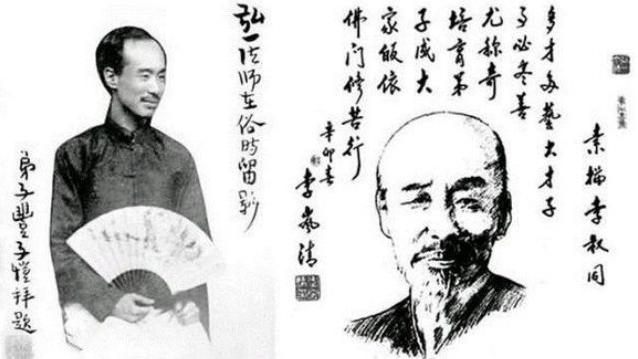 弘一法师在俗時留影
弟子豐子愷拜題
素描李叔同
多才多藝大才子
事必冬善
尤称奇
培育弟
子成大
家皈依
佛门修苦行
辛卯春
李嵐清